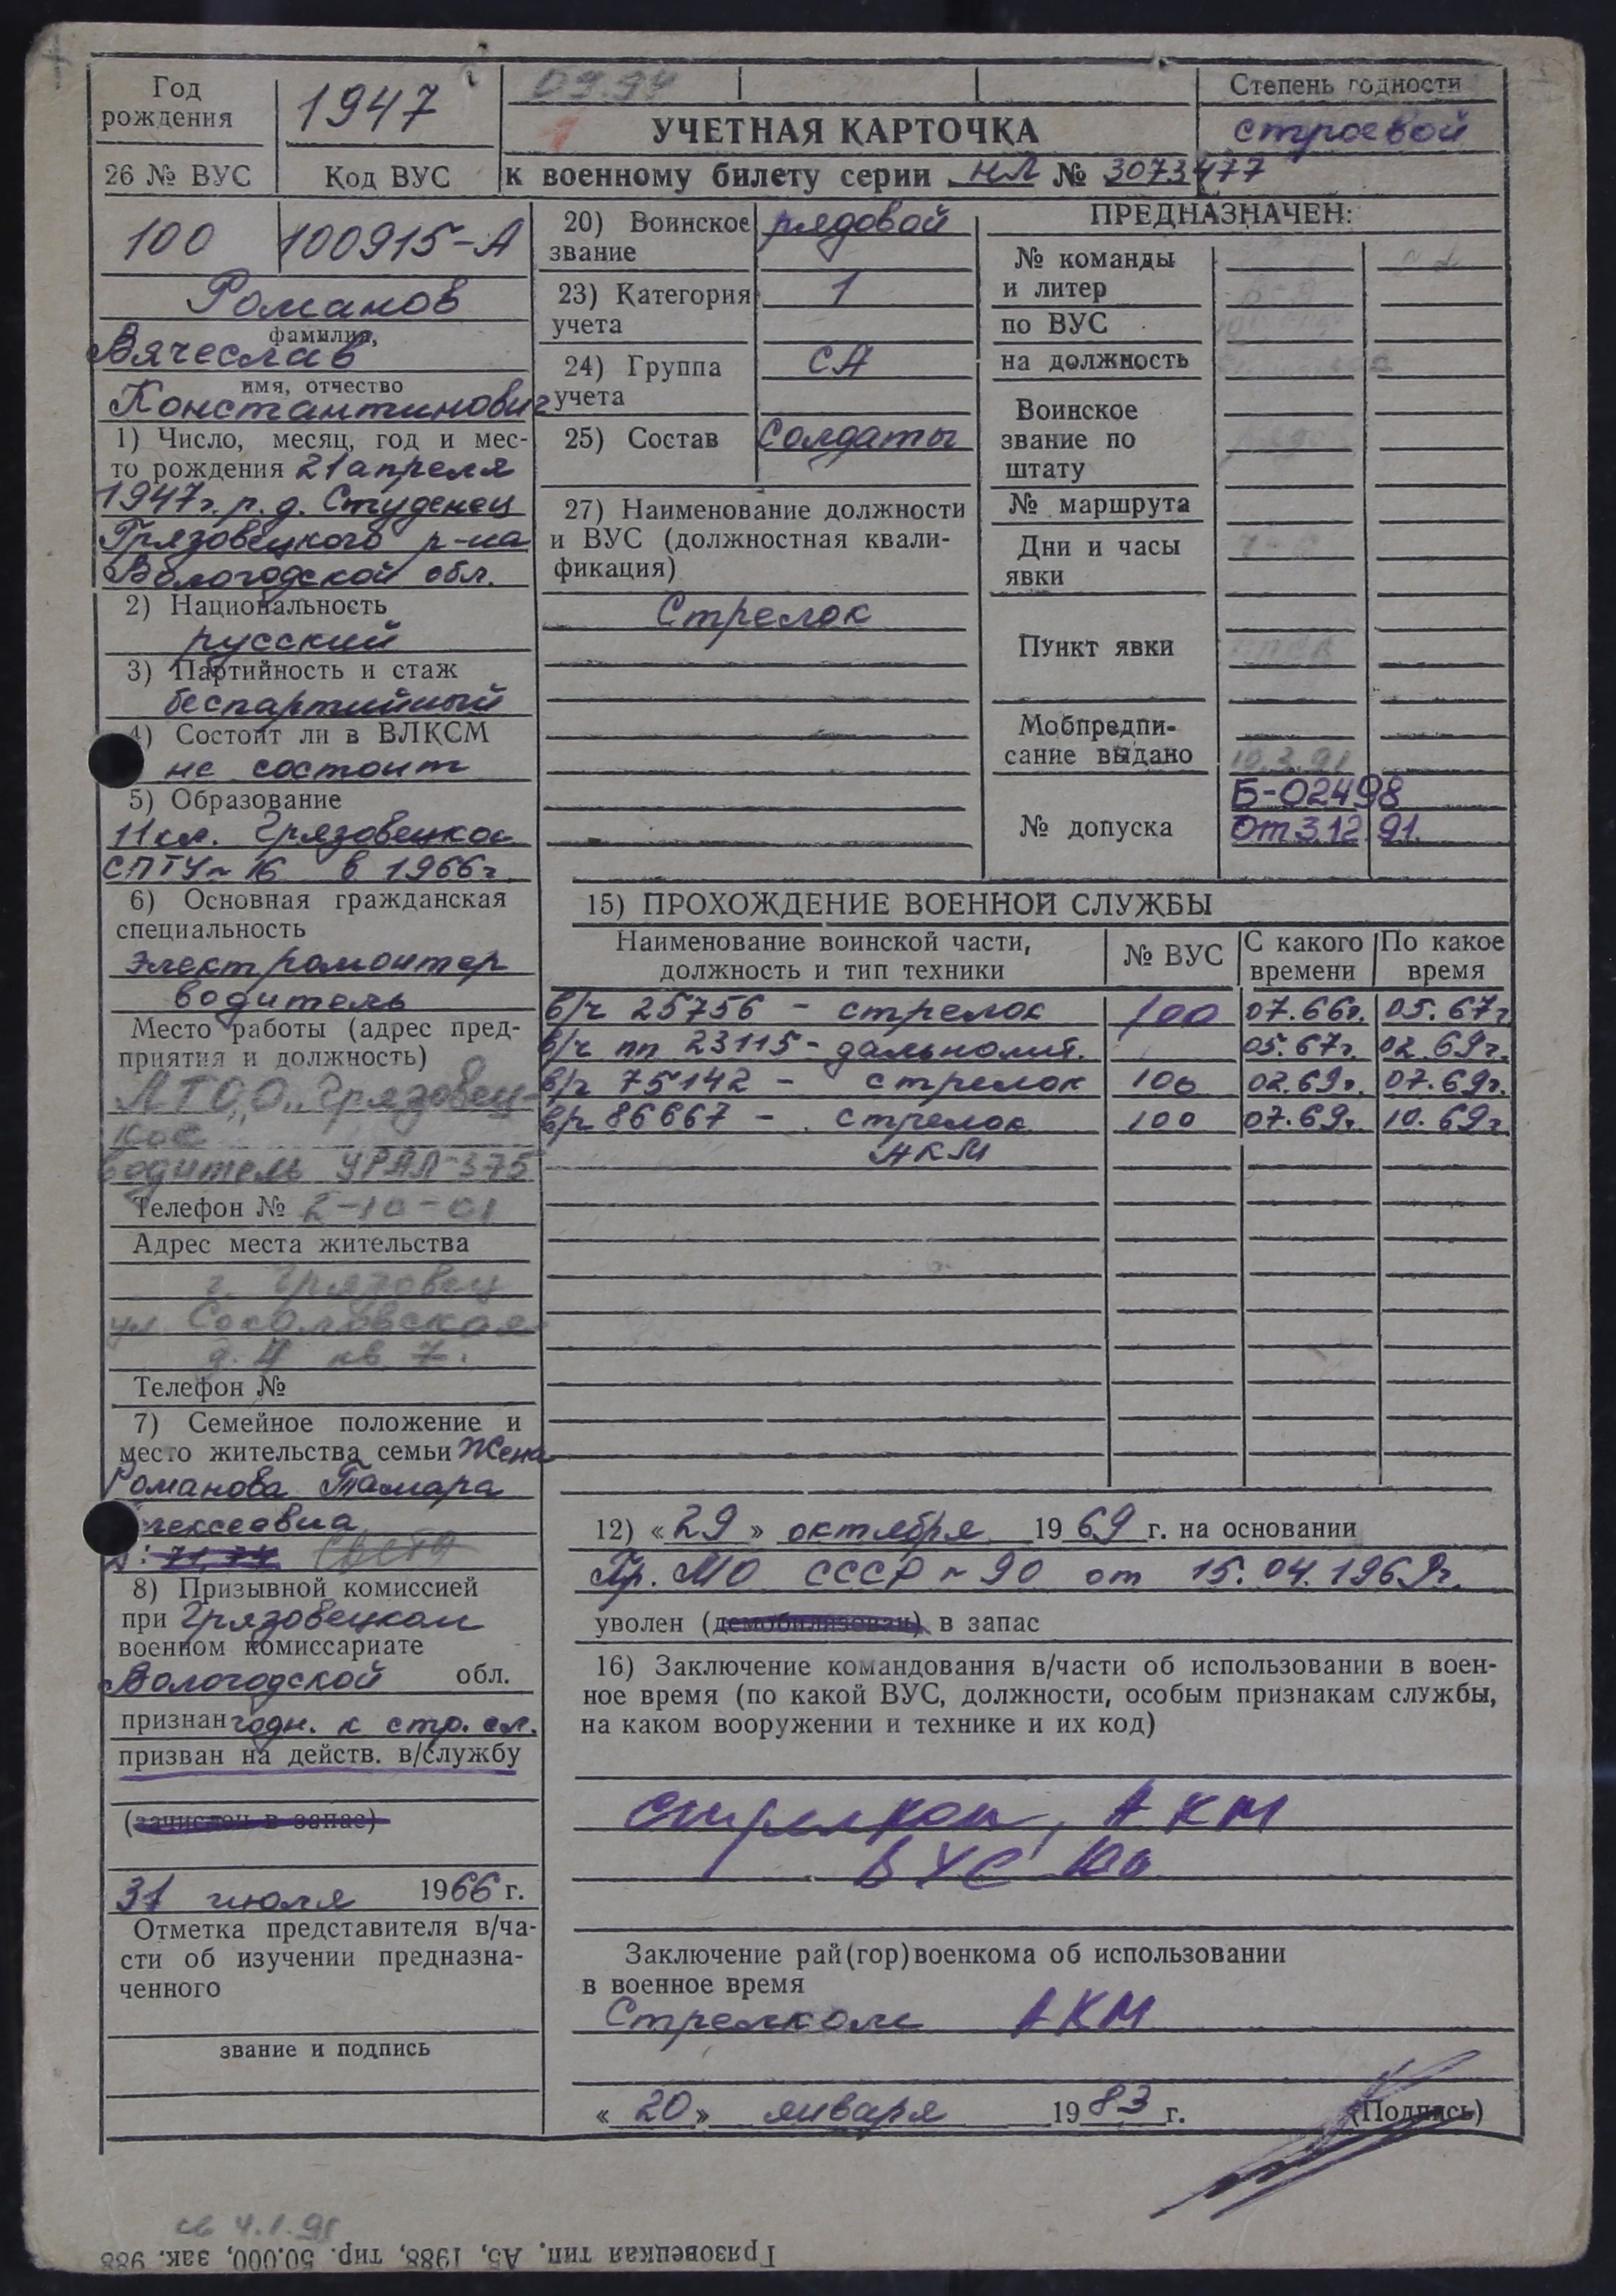 Год
рождения
1947
09.94
Степень годности
строевой
1
УЧЕТНАЯ КАРТОЧКА
к военному билету серии НЛ № 3073477
26 № ВУС
Код ВУС
100
100915-А
Романов
фамилия,
Вячеслав
имя, отчество
Константинович
1) Число, месяц, год и мес-
то рождения 21 апреля
1947г. р. д. Студенец
Грязовецкого р-на
Вологодской обл.
2) Национальность
русский
3) Партийность и стаж
беспартийный
4) Состоит ли в ВЛКСМ
не состоит
5) Образование
11 кл. Грязовецкое
СПТУ-16 в 1966г
6) Основная гражданская
специальность
электромонтер
водитель
Место работы (адрес пред-
приятия и должность)
АТОО „Грязовец-
кое"
водитель УРАЛ-375
Телефон № 2-10-01
Адрес места жительства
г. Грязовец
ул. Соколовская
д. 4 кв 7.
Телефон №
7) Семейное положение и
место жительства семьи Жена
Романова Тамара
лексеевна
71, 74
8) Призывной комиссией
при Грязовецком
военном комиссариате
Вологодской обл.
признан годн. к стр. сл.
призван на действ. в/службу
(зачислен в запас)
31 июля 1966 г.
Отметка представителя в/ча-
сти об изучении предназна-
ченного
звание и подпись
20) Воинское
звание
рядовой
23) Категория
учета
1
24) Группа
учета
СА
25) Состав
солдаты
27) Наименование должности
и ВУС (должностная квали-
фикация)
Стрелок
ПРЕДНАЗНАЧЕН:
№ команды
и литер
по ВУС
на должность
Воинское
звание по
штату
№ маршрута
Дни и часы
явки
Пункт явки
Мобпредпи-
сание выдано
10.3.91
№ допуска
Б-02498
от 3.12.91.
15) ПРОХОЖДЕНИЕ ВОЕННОЙ СЛУЖБЫ
Наименование воинской части,
должность и тип техники
№ ВУС
С какого
времени
По какое
время
в/ч 25756 - стрелок 100 07.66г. 05.67г
в/ч пп 23115 - дальномит. 05.67г. 02.69г.
в/ч 75142 - стрелок 100 02.69г. 07.69г.
в/ч 86667 - стрелок 100 07.69г. 10.69г
АКМ
12) «29» октября 1969 г. на основании
Пр. МО СССР № 90 от 15.04.1969г.
уволен (демобилизован) в запас
16) Заключение командования в/части об использовании в воен-
ное время (по какой ВУС, должности, особым признакам службы,
на каком вооружении и технике и их код)
стрелком, АКМ
ВУС 100
Заключение рай(гор)военкома об использовании
в военное время
Стрелком АКМ
«20» января 1983 г.
(Подпись)
св 4.1.91
Грязовецкая тип. А5, 1988, тир. 50.000, зак. 988